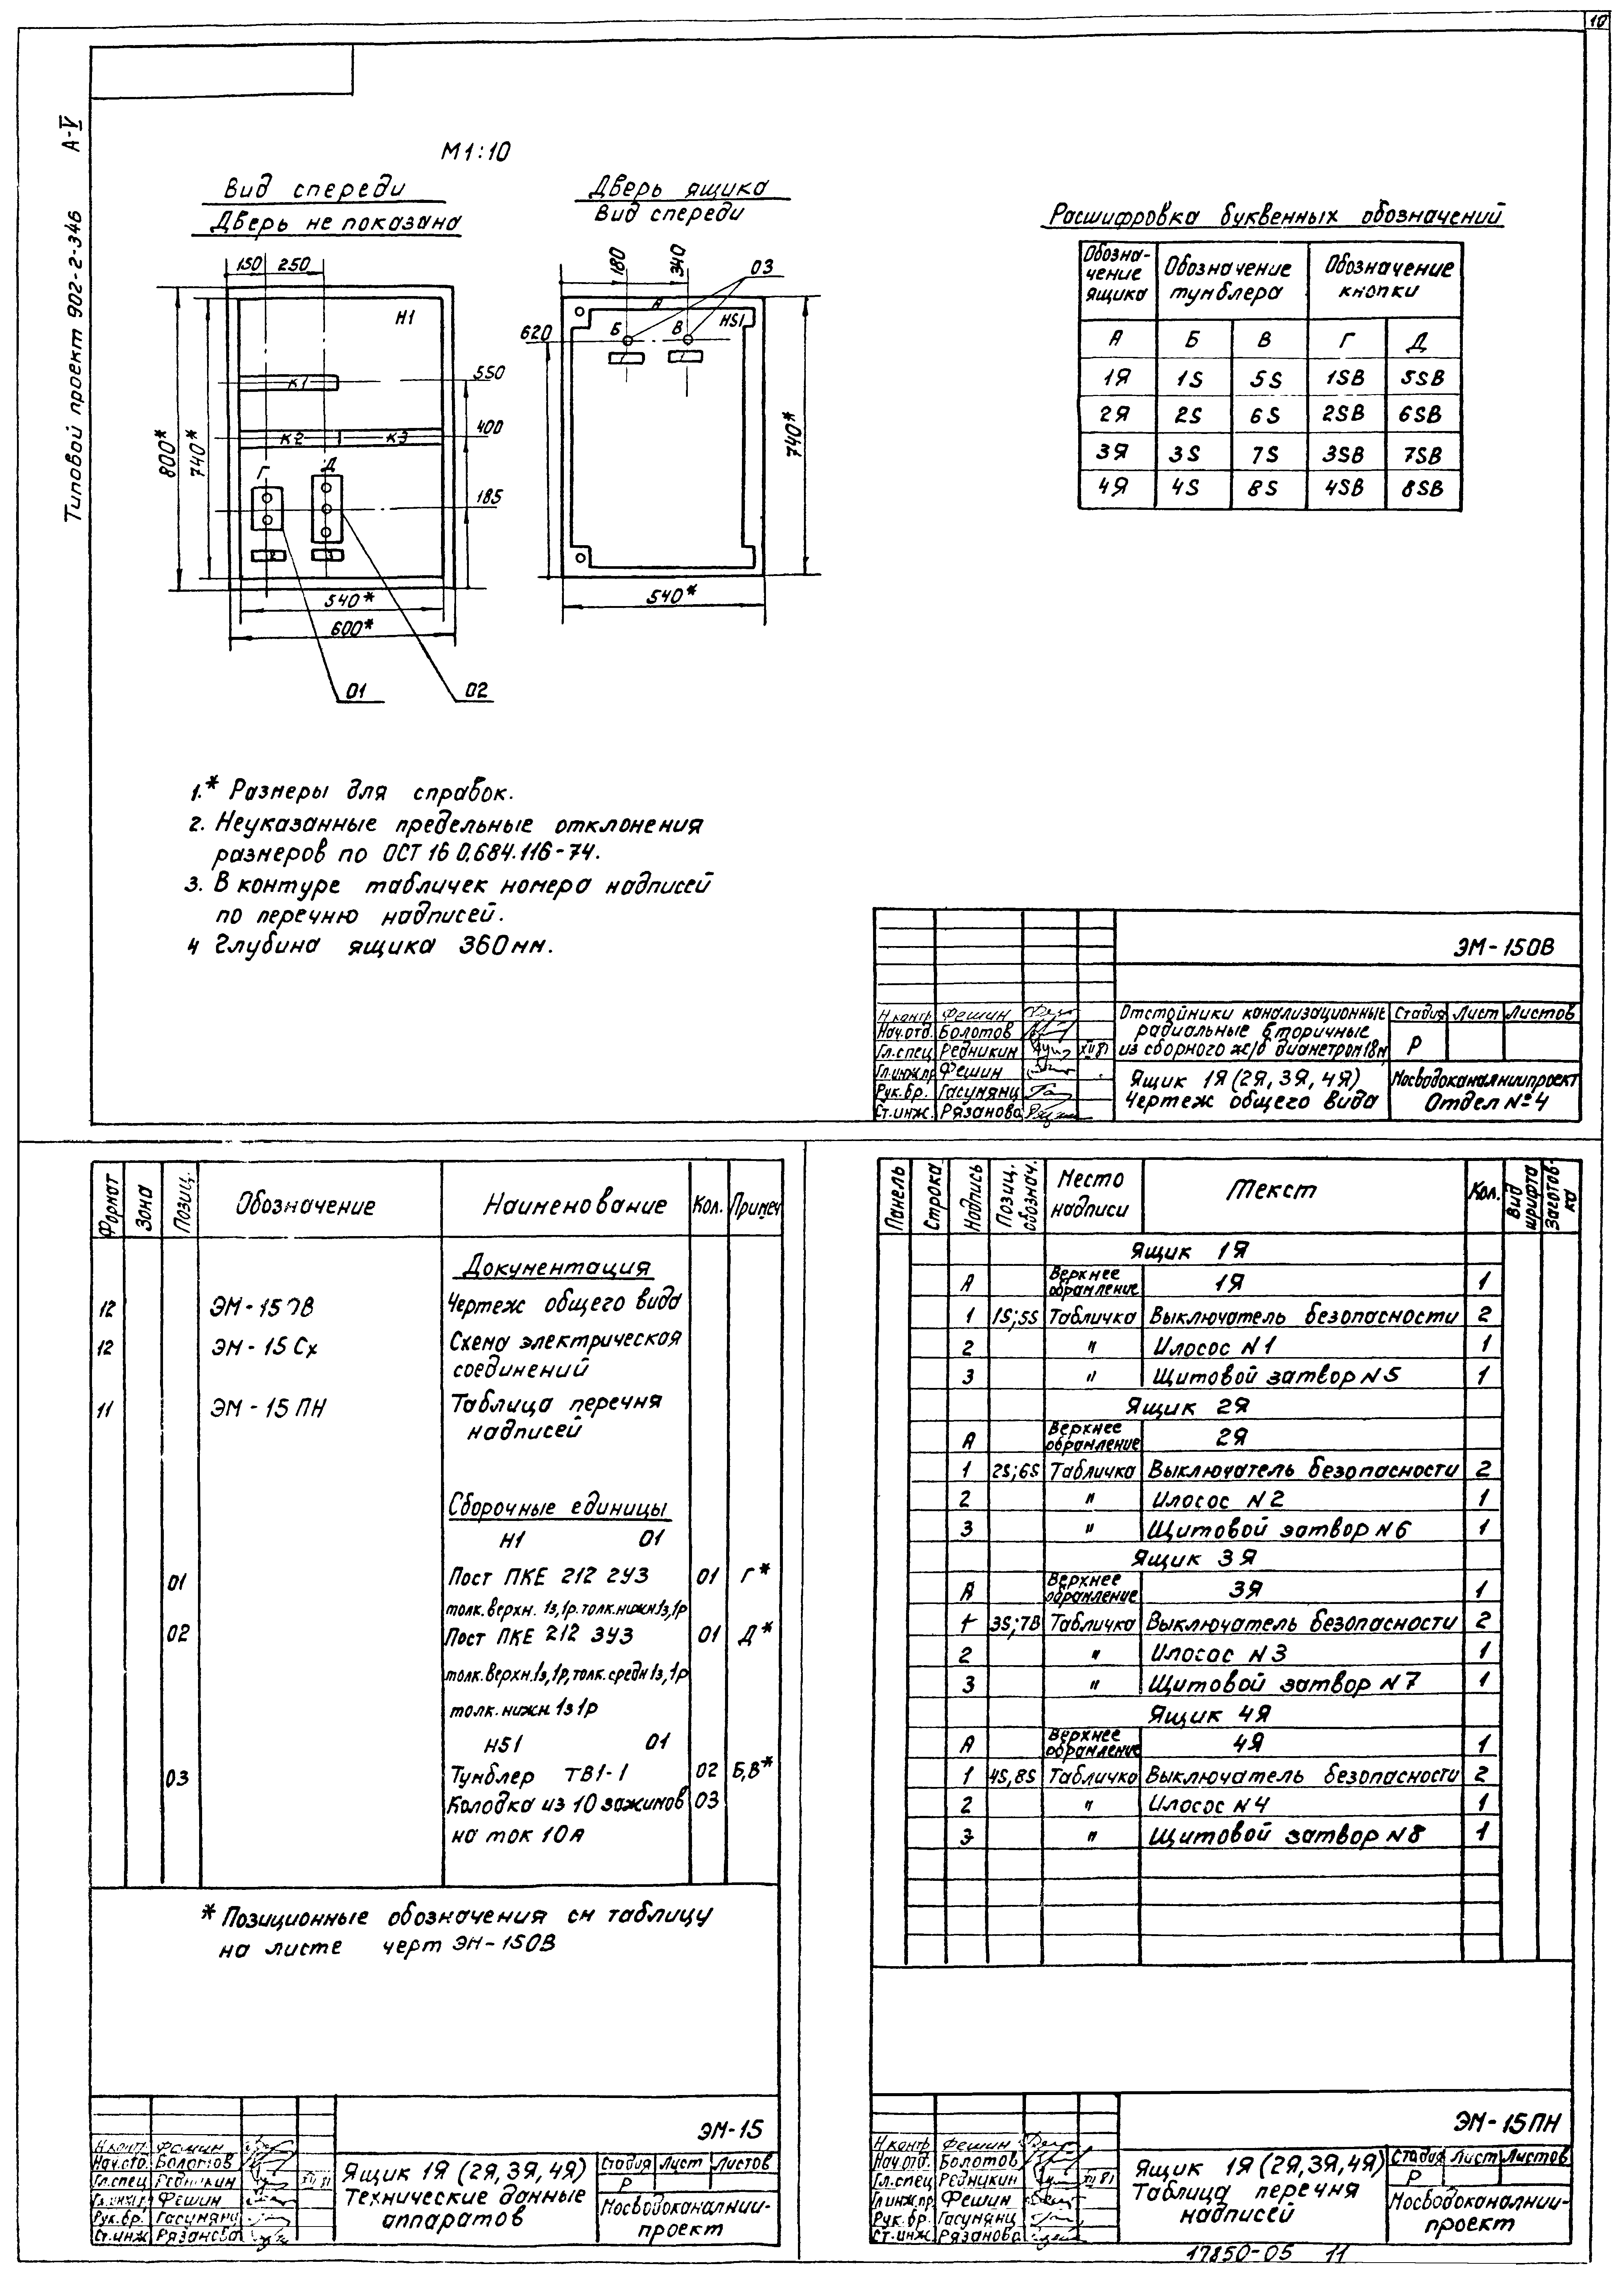 10
Типовой проект 902-2-346 А-V
М1:10
Вид спереди
Дверь не показана
Дверь ящика
Вид спереди
Расшифровка буквенных обозначений
150 250
Н1
К1
К2 К3
Г Д
550
400
185
800*
740*
540*
600*
01 02
180 340 03
А
НS1
Б В
620
740*
540*
Обозначение ящика | Обозначение тумблера | Обозначение кнопки
А Б В Г Д
1Я 1S 5S 1SB 5SB
2Я 2S 6S 2SB 6SB
3Я 3S 7S 3SB 7SB
4Я 4S 8S 4SB 8SB
1.* Размеры для справок.
2. Неуказанные предельные отклонения
размеров по ОСТ 16 0.684.116-74.
3. В контуре табличек номера надписей
по перечню надписей.
4 Глубина ящика 360мм.
ЭМ-15ОВ
Н контр Фешин
Нач.отд. Болотов
Гл.спец Редникин XII 81
Гл.инж.пр Фешин
Рук.бр. Гасумянц
Ст.инж. Рязанова
Отстойники канализационные
радиальные вторичные
из сборного ж/б диаметром 18м
Стадия Лист Листов
Р
Ящик 1Я (2Я, 3Я, 4Я)
Чертеж общего вида
Мосводоканалниипроект
Отдел №4
Формат Зона Позиц. Обозначение Наименование Кол. Примеч
Документация
12 ЭМ-15ОВ Чертеж общего вида
12 ЭМ-15 Сх Схема электрическая
соединений
11 ЭМ-15 ПН Таблица перечня
надписей
Сборочные единицы
Н1 01
01 Пост ПКЕ 212 2У3 01 Г*
толк.верхн. 1з,1р.толк.нижн1з,1р
02 Пост ПКЕ 212 3У3 01 Д*
толк.верхн.1з,1р,толк.средн1з,1р
толк.нижн 1з1р
НS1 01
03 Тумблер ТВ1-1 02 Б,В*
Колодка из 10 зажимов 03
на ток 10А
* Позиционные обозначения см таблицу
на листе черт ЭМ-15ОВ
ЭМ-15
Н.конт. Фешин
Нач.отд. Болотов
Гл.спец Редникин XII 81
Гл.инж.пр Фешин
Рук.бр. Гасумянц
Ст.инж Рязанова
Ящик 1Я (2Я,3Я,4Я)
Технические данные
аппаратов
Стадия Лист Листов
Р
Мосводоканалнии-
проект
Панель Строка Надпись Позиц. обознач. Место надписи Текст Кол. Вид шрифта Заготовка
Ящик 1Я
А Верхнее обрамление 1Я 1
1 1S;5S Табличка Выключатель безопасности 2
2 " Илосос N1 1
3 " Щитовой затвор N5 1
Ящик 2Я
А Верхнее обрамление 2Я
1 2S;6S Табличка Выключатель безопасности 2
2 " Илосос N2 1
3 " Щитовой затвор N6 1
Ящик 3Я
А Верхнее обрамление 3Я 1
1 3S;7В Табличка Выключатель безопасности 2
2 " Илосос N3 1
3 " Щитовой затвор N7 1
Ящик 4Я
А Верхнее обрамление 4Я 1
1 4S,8S Табличка Выключатель безопасности 2
2 " Илосос N4 1
3 " Щитовой затвор N8 1
ЭМ-15ПН
Н контр Фешин
Нач.отд. Болотов
Гл.спец Редникин XII 81
Гл инж.пр. Фешин
Рук.бр. Гасумянц
Ст.инж Рязанова
Ящик 1Я (2Я,3Я,4Я)
Таблица перечня
надписей
Стадия Лист Листов
Р
Мосводоканалнии-
проект
17850-05 11